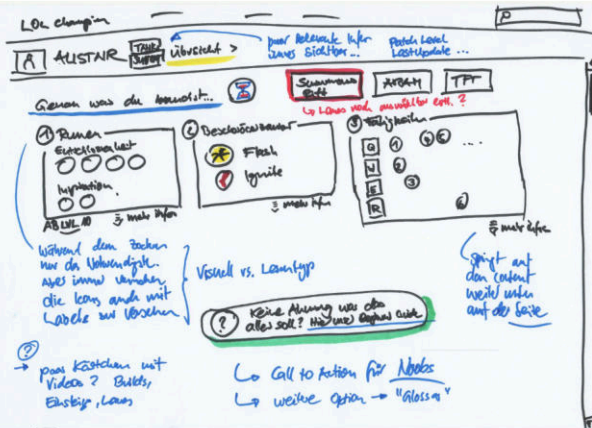 LOL champion
ALISTAR
TANK
SUPPORT
Übersicht >
paar relevante Infos
immer sichtbar...
Patch Level
Last Update ...
Genau was du brauchst...
Summoners
Rift
ARAM
TFT
↳ Lanes noch auswählbar evtl. ?
① Runen
Entschlossenheit
Inspiration
AB LVL 10
mehr Infos
② Beschwörerzauber
Flash
Ignite
mehr Infos
③ Fähigkeiten
Q
W
E
R
...
mehr Infos
Während dem Zocken
nur das Notwendigste.
Aber immer versuchen
die Icons auch mit
Labels zu versehen
Visuell vs. Lerntyp
springt auf
den Content
weiter unten
auf der Seite
? Keine Ahnung was das
alles soll? Hier unser Guide
↳ Call to Action für Noobs
↳ weitere Option → "Glossar"
?
→ paar Kästchen mit
Videos? Builds,
Einstieg, Lanes